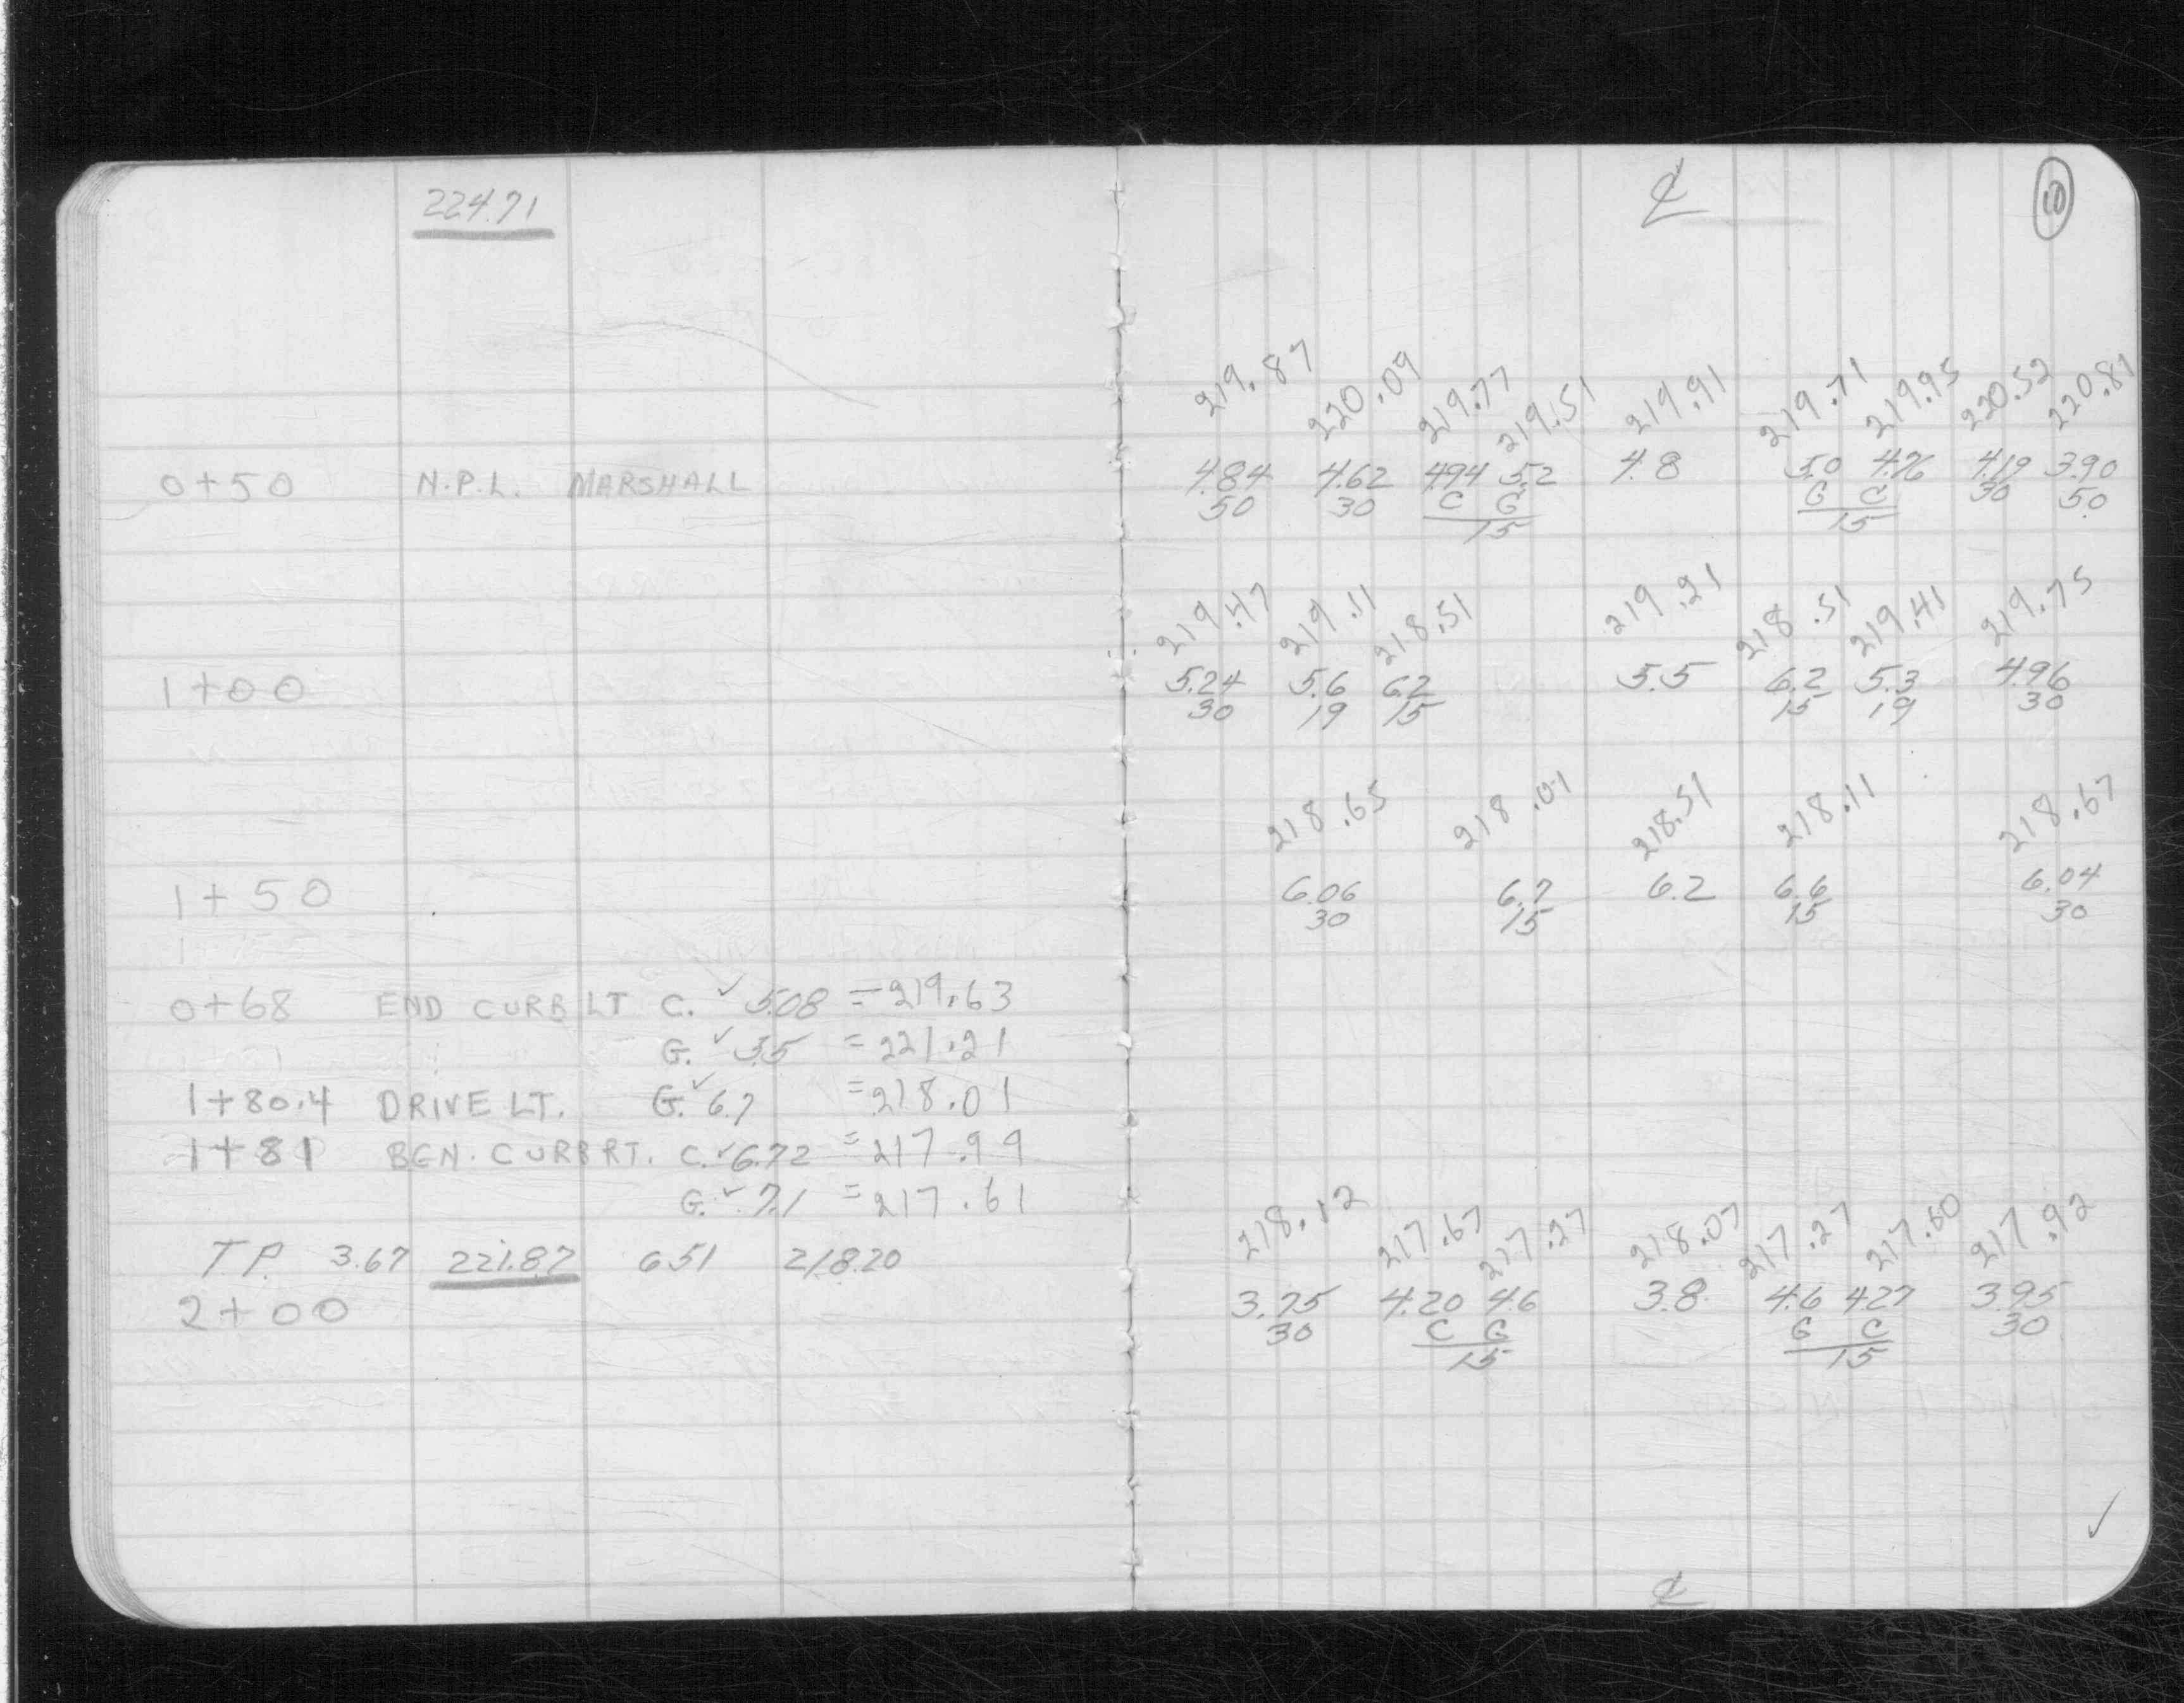 224.71
0+50 N.P.L. MARSHALL
1+00
1+50
0+68 END CURB LT C. ✓ 5.08 = 219.63
G. ✓ 3.5 = 221.21
1+80.4 DRIVE LT. G. ✓ 6.7 = 218.01
1+81 BGN. CURB RT. C. ✓ 6.72 = 217.99
G. ✓ 7.1 = 217.61
T.P. 3.67 221.87 6.51 218.20
2+00
℄ 10
219.87 220.09 219.77 219.51 219.91 219.71 219.95 220.52 220.81
4.84 4.62 4.94 5.2 4.8 5.0 4.76 4.19 3.90
50 30 C G G C 30 50
15 15
219.47 219.11 218.51 219.21 218.51 219.41 219.75
5.24 5.6 6.2 5.5 6.2 5.3 4.96
30 19 15 15 19 30
218.65 218.01 218.51 218.11 218.67
6.06 6.7 6.2 6.6 6.04
30 15 15 30
218.12 217.67 217.27 218.07 217.27 217.60 217.92
3.75 4.20 4.6 3.8 4.6 4.27 3.95
30 C G G C 30
15 15
✓
℄